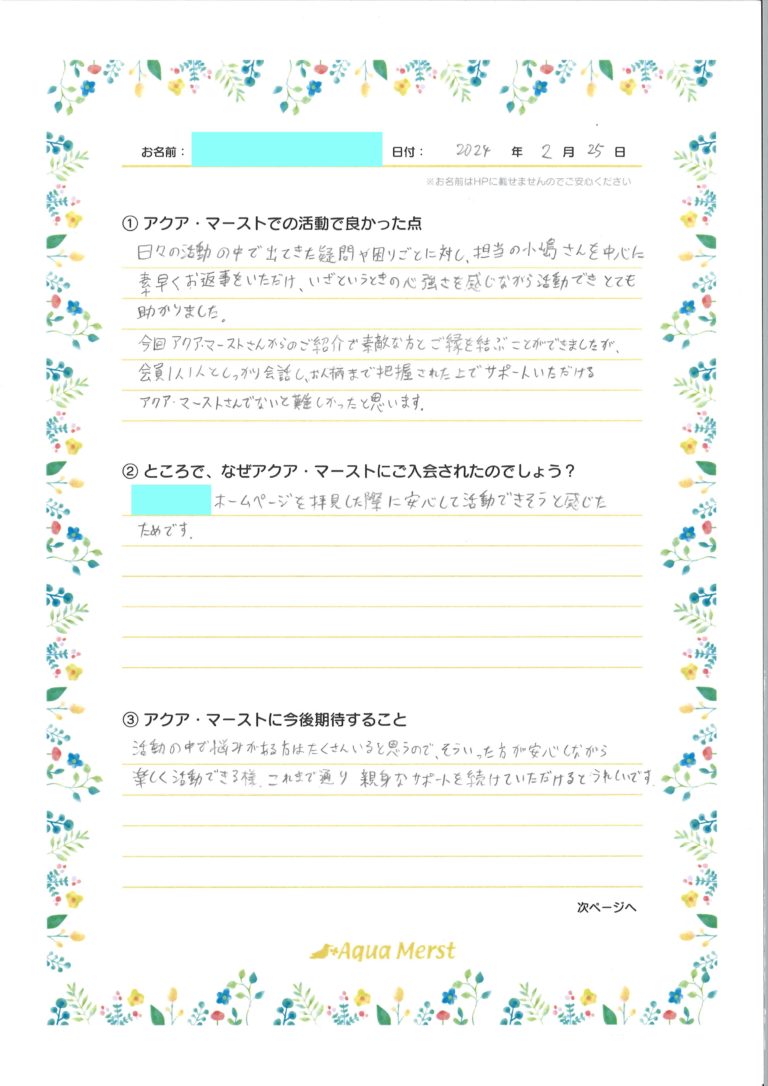 お名前： 日付： 2024 年 2 月 25 日
※お名前はHPに載せませんのでご安心ください
① アクア・マーストでの活動で良かった点
日々の活動の中で出てきた疑問や困りごとに対し、担当の小嶋さんを中心に
素早くお返事をいただけ、いざというときの心強さを感じながら活動できとても
助かりました。
今回アクアマーストさんからのご紹介で素敵な方とご縁を結ぶことができましたが、
会員1人1人としっかり会話し、お人柄まで把握された上でサポートいただける
アクア・マーストさんでないと難しかったと思います。
② ところで、なぜアクア・マーストにご入会されたのでしょう？
ホームページを拝見した際に安心して活動できそうと感じた
ためです。
③ アクア・マーストに今後期待すること
活動の中で悩みがある方はたくさんいると思うので、そういった方が安心しながら
楽しく活動できる様、これまで通り親身なサポートを続けていただけるとうれしいです。
次ページへ
Aqua Merst